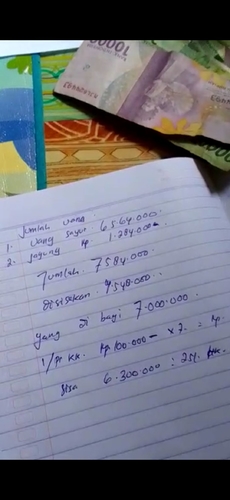 Jumlah uang
1. Uang sayur 6.564.000.
2. Jagung Rp 1.284.000
Jumlah: 7584.000.
Disisakan: 7548.000.
yang di bagi: 7.000.000.
1/Pr KK. Rp 100.000 - x 7. = Rp.
Sisa 6.300.000 : 251.
100000